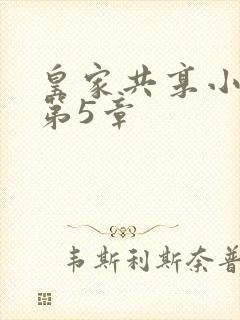 皇家共享小
第5章
韦斯利斯奈普